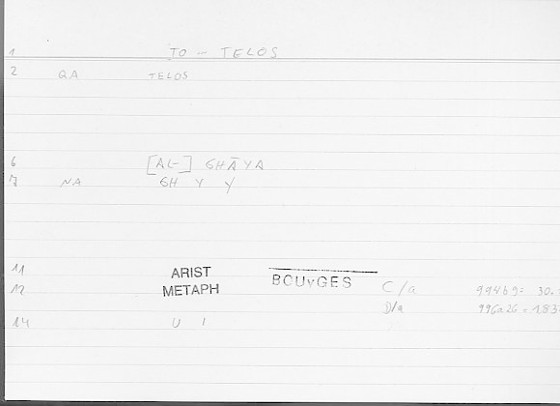 1 TO - TELOS
2 QA TELOS
6 [AL-] GHĀYA
7 NA GH Y Y
11 ARIST BOUYGES
12 METAPH C/a 994b9 = 30.
D/a 996a26 = 183
14 U I